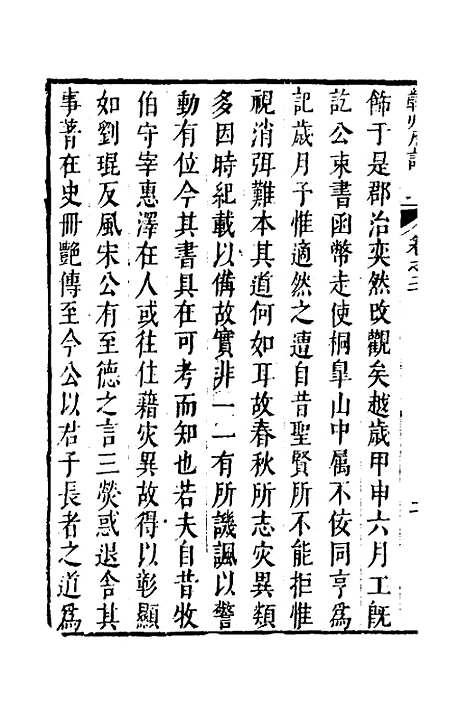 飾于是郡治奕然改觀矣越歲甲申六月工既
訖公束書函幣走使桐臯山中屬不佞同亨爲
記歲月予惟適然之遭自昔聖賢所不能拒惟
視消弭難本其道何如耳故春秋所志灾異類
多因時紀載以備故實非一一有所譏諷以警
動有位今其書具在可考而知也若夫自昔牧
伯守宰惠澤在人或往仕藉灾異故得以彰顯
如劉琨反風宋公有至德之言三熒惑退舎其
事著在史冊艷傳至今公以君子長者之道爲